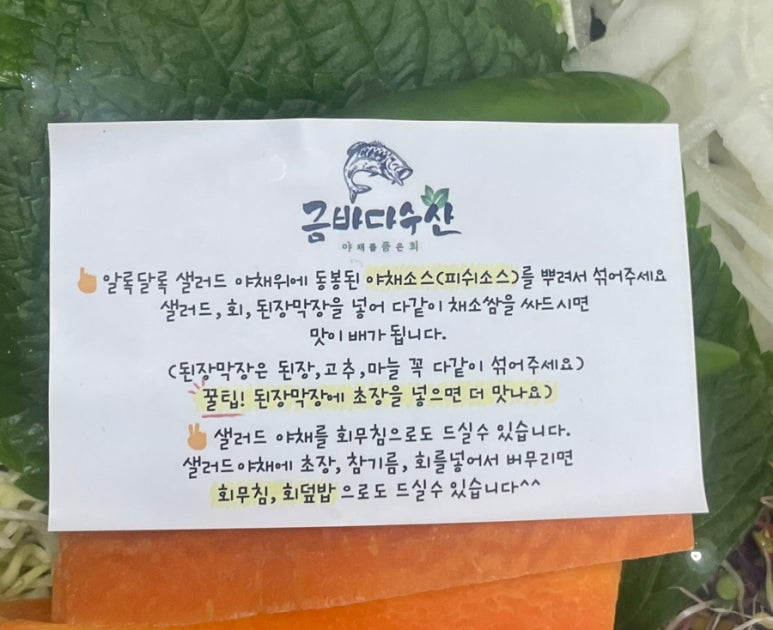 금바다수산
야채를품은회
👆알록달록 샐러드 야채위에 동봉된 야채소스(피쉬소스)를 뿌려서 섞어주세요
샐러드, 회, 된장막장을 넣어 다같이 채소쌈을 싸드시면
맛이 배가 됩니다.
(된장막장은 된장,고추,마늘 꼭 다같이 섞어주세요)
꿀팁! 된장막장에 초장을 넣으면 더 맛나요)
✌샐러드 야채를 회무침으로도 드실수 있습니다.
샐러드야채에 초장, 참기름, 회를넣어서 버무리면
회무침, 회덮밥 으로도 드실수 있습니다^^